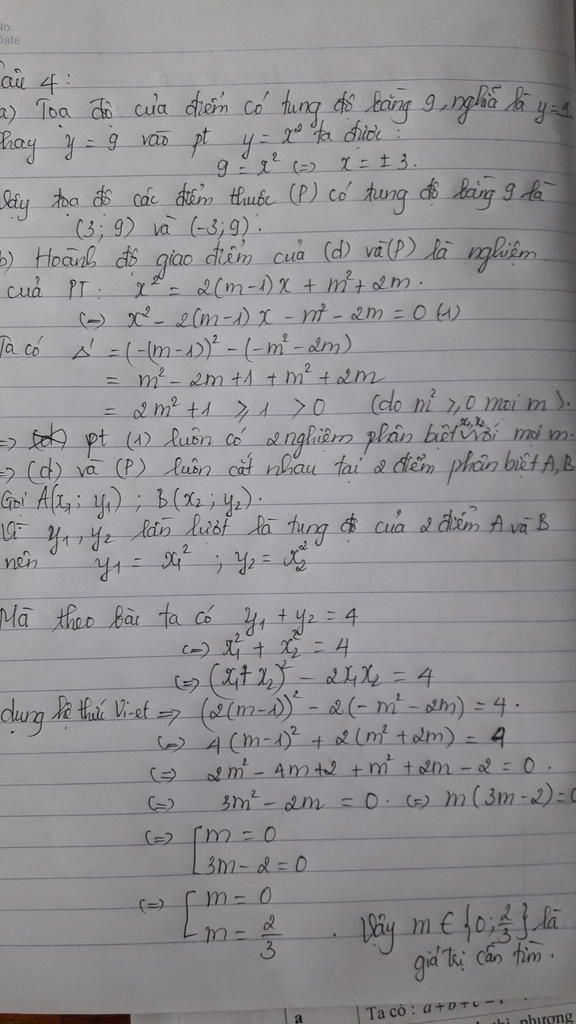 No
Date
Câu 4:
a) Toạ độ của điểm có tung độ bằng 9, nghĩa là y=9
thay y = 9 vào pt y = x² ta được:
9 = x² <=> x = ± 3.
Vậy toạ độ các điểm thuộc (P) có tung độ bằng 9 là
(3; 9) và (-3; 9).
b) Hoành độ giao điểm của (d) và (P) là nghiệm
của PT: x² = 2(m-1)x + m² + 2m.
<=> x² - 2(m-1)x - m² - 2m = 0 (1)
Ta có Δ' = (-(m-1))² - (-m² - 2m)
= m² - 2m + 1 + m² + 2m
= 2m² + 1 ⩾ 1 > 0 (do m² ⩾ 0 mọi m).
=> pt (1) luôn có 2 nghiệm phân biệt x₁, x₂ với mọi m.
=> (d) và (P) luôn cắt nhau tại 2 điểm phân biệt A, B
Gọi A(x₁; y₁) ; B(x₂; y₂).
Vì y₁, y₂ lần lượt là tung độ của 2 điểm A và B
nên y₁ = x₁² ; y₂ = x₂²
Mà theo bài ta có y₁ + y₂ = 4
<=> x₁² + x₂² = 4
<=> (x₁ + x₂)² - 2x₁x₂ = 4
dụng hệ thức Vi-et => (2(m-1))² - 2(-m² - 2m) = 4.
<=> 4(m-1)² + 2(m² + 2m) = 4
<=> 2m² - 4m + 2 + m² + 2m - 2 = 0.
<=> 3m² - 2m = 0. <=> m(3m-2) = 0
<=> [ m = 0
3m - 2 = 0
<=> [ m = 0
m = 2/3 . Vậy m ∈ {0; 2/3} là
giá trị cần tìm.
a
Ta có : a+b+c
phương